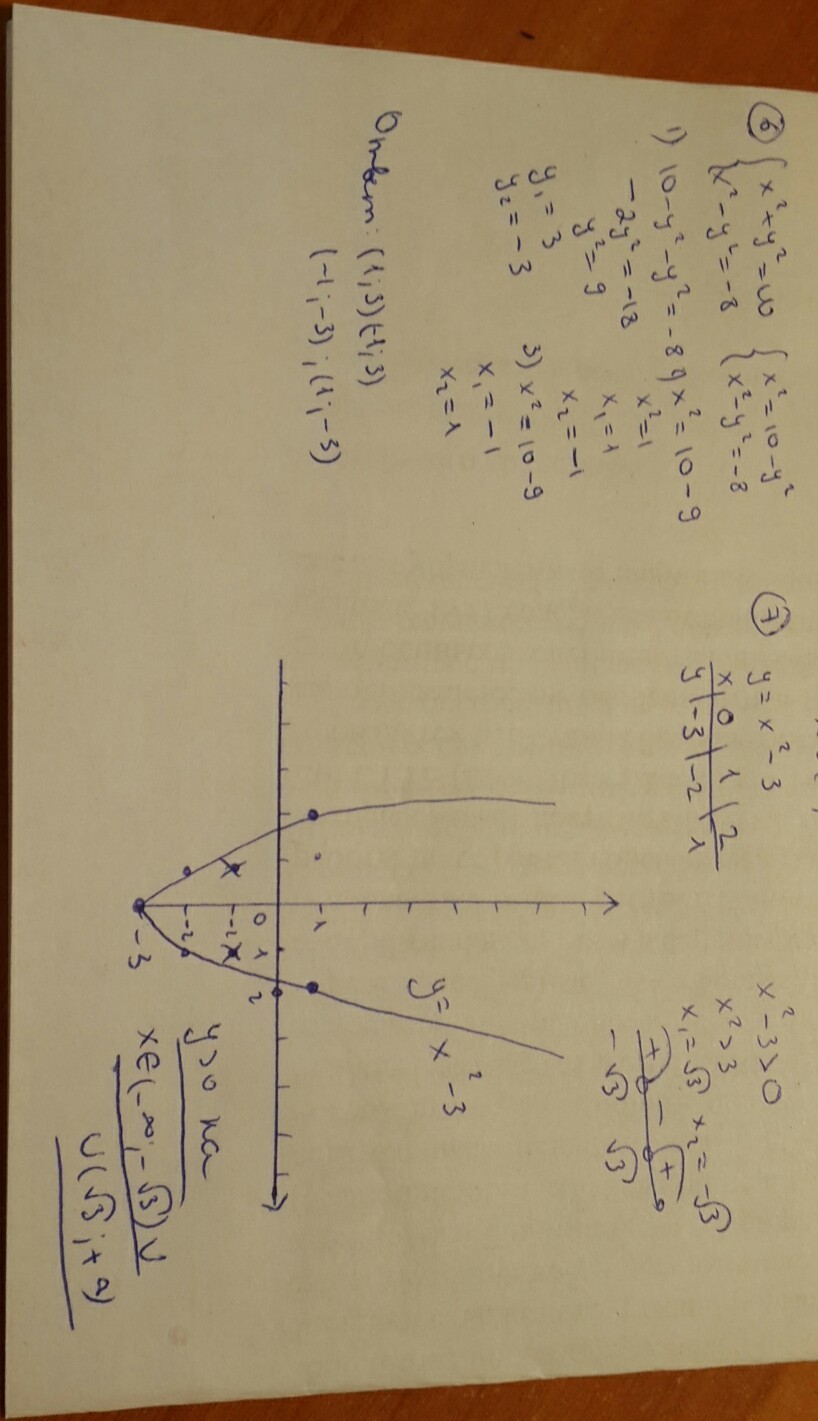 6 { x² + y² = 10 { x² = 10 - y²
{ x² - y² = -8 { x² - y² = -8
1) 10 - y² - y² = -8
- 2y² = -18
y² = 9
y₁ = 3
y₂ = -3
x² = 10 - 9
x² = 1
x₁ = 1
x₂ = -1
3) x² = 10 - 9
x₁ = -1
x₂ = 1
Ответ: (1; 3) (-1; 3)
(-1; -3); (1; -3)
7 y = x² - 3
x | 0 | 1 | 2
y | -3 | -2 | 1
x² - 3 > 0
x² > 3
x₁ = √3 x₂ = -√3
+ - +
-√3 √3
y = x² - 3
1
0 1 2
-2
-2
-3
y>0 на
x∈(-∞; -√3) ∪
∪ (√3; +∞)